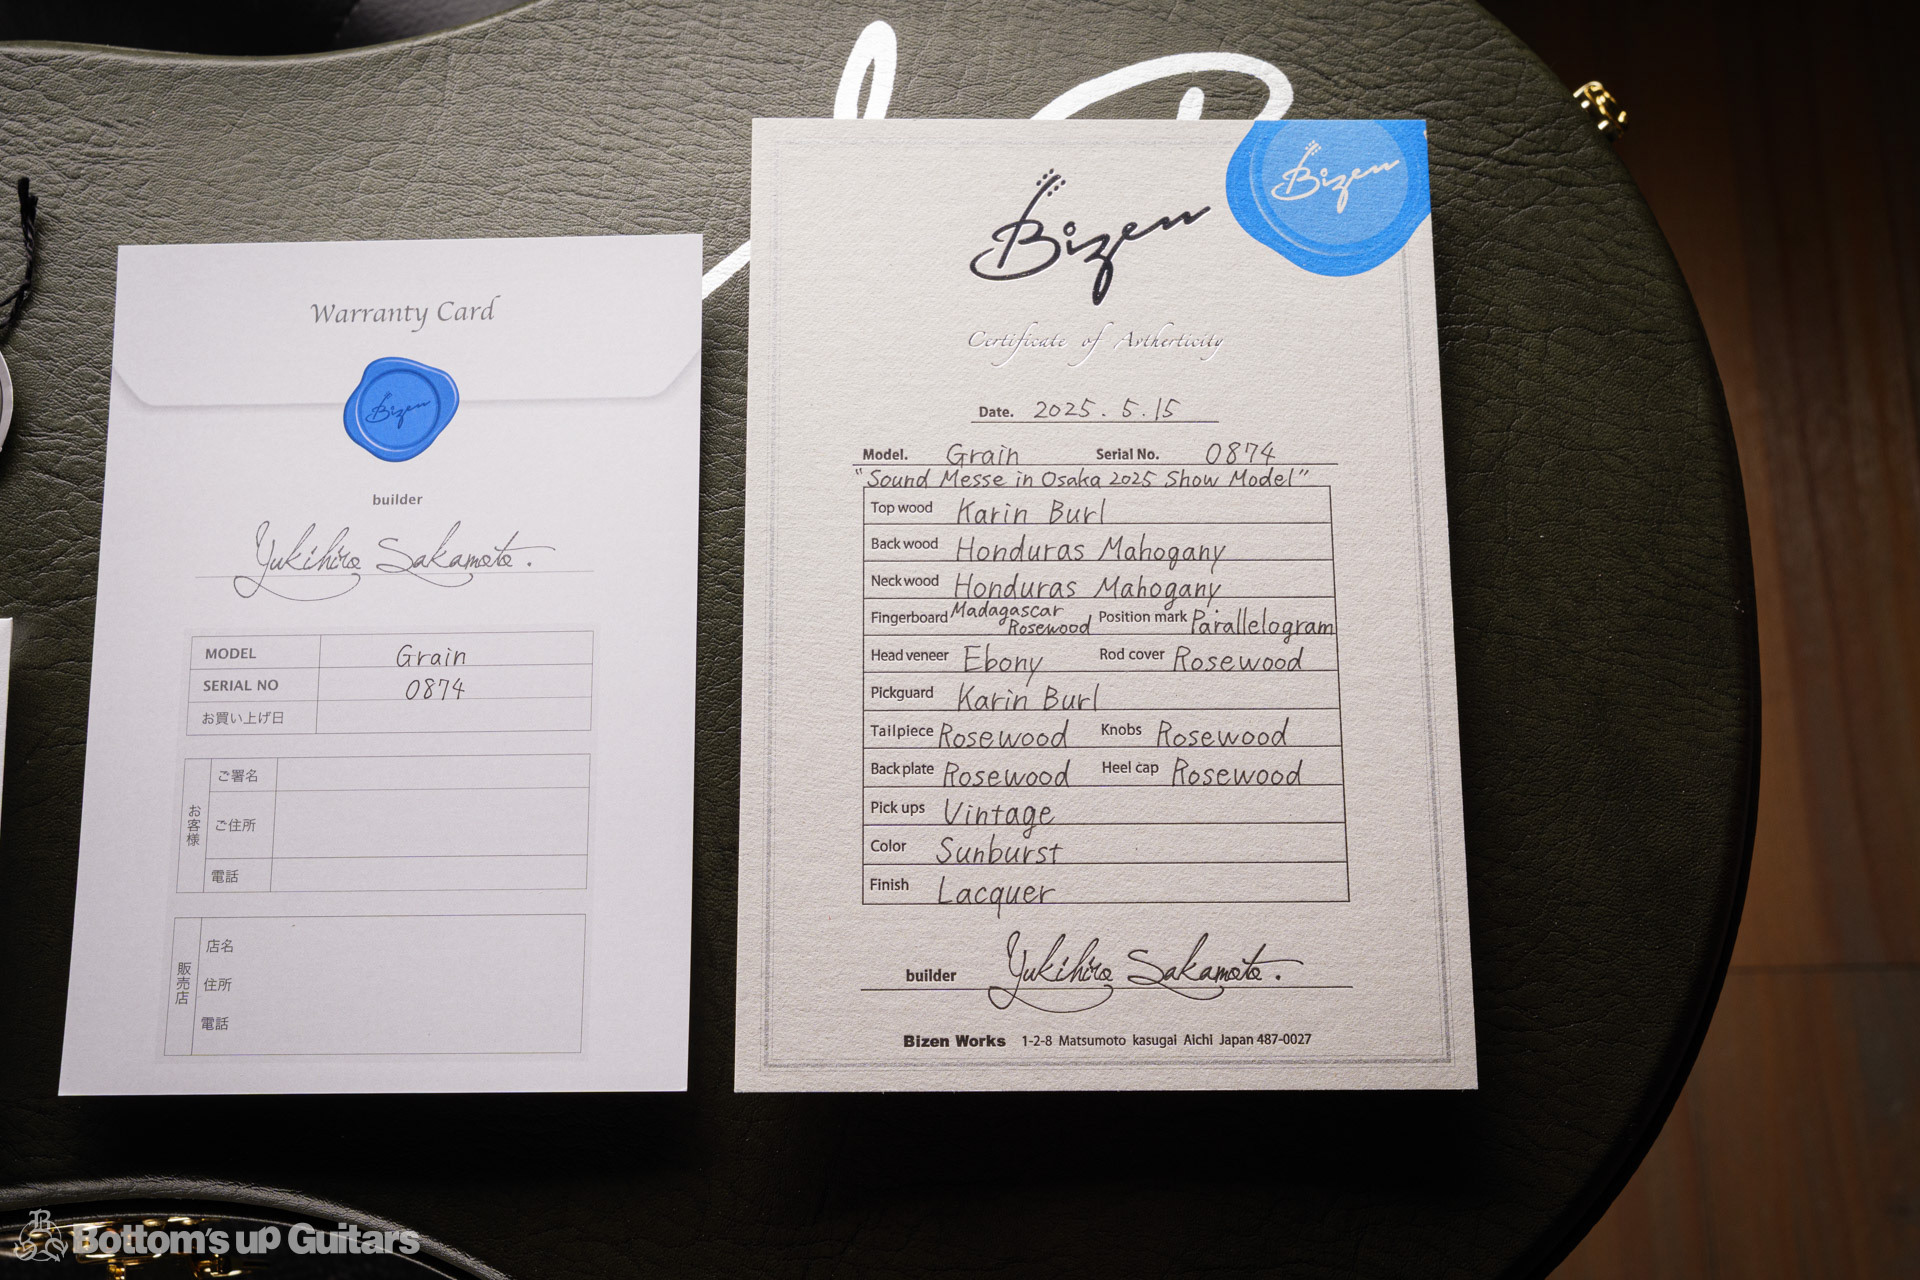 Warranty Card
Bizen
builder
Yukihiro Sakamoto.
MODEL Grain
SERIAL NO 0874
お買い上げ日
お客様
ご署名
ご住所
電話
販売店
店名
住所
電話
Bizen
Bizen
Certificate of Artherticity
Date. 2025.5.15
Model. Grain Serial No. 0874
"Sound Messe in Osaka 2025 Show Model"
Top wood Karin Burl
Back wood Honduras Mahogany
Neck wood Honduras Mahogany
Fingerboard Madagascar Rosewood Position mark Parallelogram
Head veneer Ebony Rod cover Rosewood
Pickguard Karin Burl
Tailpiece Rosewood Knobs Rosewood
Back plate Rosewood Heel cap Rosewood
Pick ups Vintage
Color Sunburst
Finish Lacquer
builder Yukihiro Sakamoto.
Bizen Works 1-2-8 Matsumoto kasugai Aichi Japan 487-0027
Bottom's up Guitars